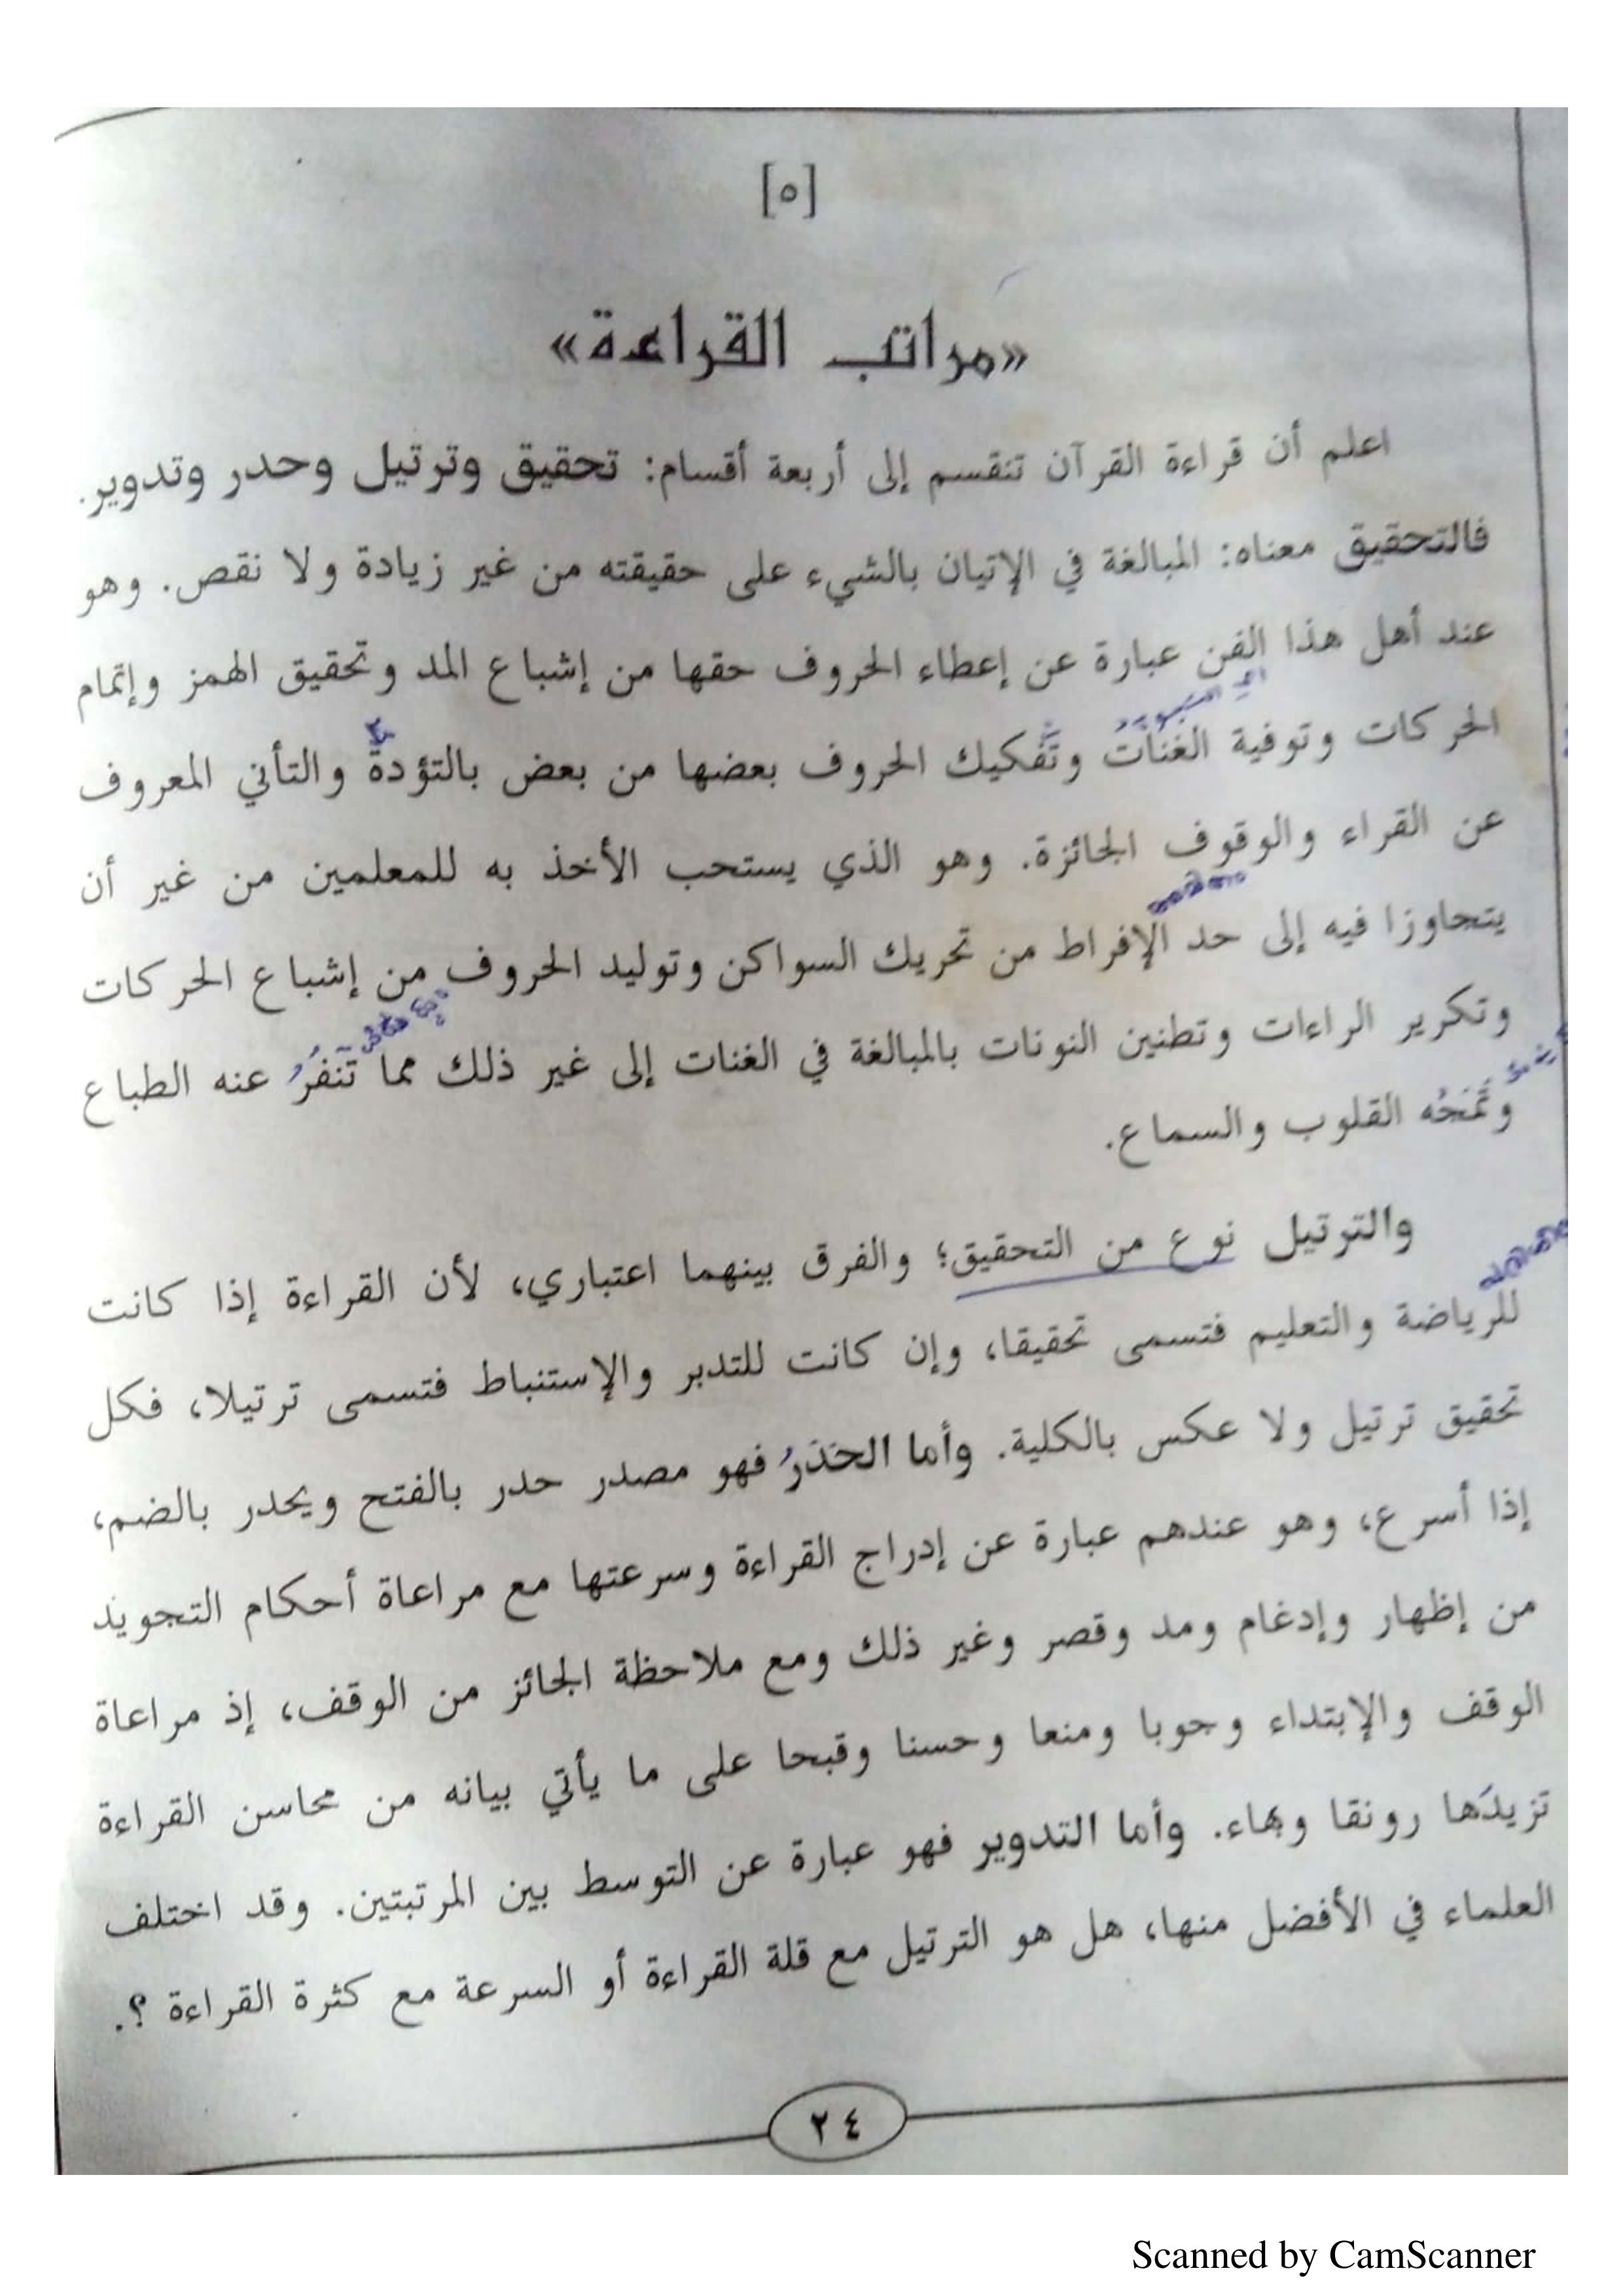 [٥]
«مراتب القراءة»
اعلم أن قراءة القرآن تنقسم إلى أربعة أقسام: تحقيق وترتيل وحدر وتدوير.
فالتحقيق معناه: المبالغة في الإتيان بالشيء على حقيقته من غير زيادة ولا نقص. وهو
عند أهل هذا الفن عبارة عن إعطاء الحروف حقها من إشباع المد وتحقيق الهمز وإتمام
الحركات وتوفية الغنات وتفكيك الحروف بعضها من بعض بالتؤدة والتأني المعروف
عن القراء والوقوف الجائزة. وهو الذي يستحب الأخذ به للمعلمين من غير أن
يتجاوزا فيه إلى حد الإفراط من تحريك السواكن وتوليد الحروف من إشباع الحركات
وتكرير الراءات وتطنين النونات بالمبالغة في الغنات إلى غير ذلك مما تَنفُرُ عنه الطباع
وتَمَجُه القلوب والسماع.
والترتيل نوع من التحقيق؛ والفرق بينهما اعتباري، لأن القراءة إذا كانت
للرياضة والتعليم فتسمى تحقيقا، وإن كانت للتدبر والإستنباط فتسمى ترتيلا، فكل
تحقيق ترتيل ولا عكس بالكلية. وأما الحَدَرُ فهو مصدر حدر بالفتح ويحدر بالضم،
إذا أسرع، وهو عندهم عبارة عن إدراج القراءة وسرعتها مع مراعاة أحكام التجويد
من إظهار وإدغام ومد وقصر وغير ذلك ومع ملاحظة الجائز من الوقف، إذ مراعاة
الوقف والإبتداء وجوبا ومنعا وحسنا وقبحا على ما يأتي بيانه من محاسن القراءة
تزيدها رونقا وبهاء. وأما التدوير فهو عبارة عن التوسط بين المرتبتين. وقد اختلف
العلماء في الأفضل منها، هل هو الترتيل مع قلة القراءة أو السرعة مع كثرة القراءة ؟.
٢٤
Scanned by CamScanner